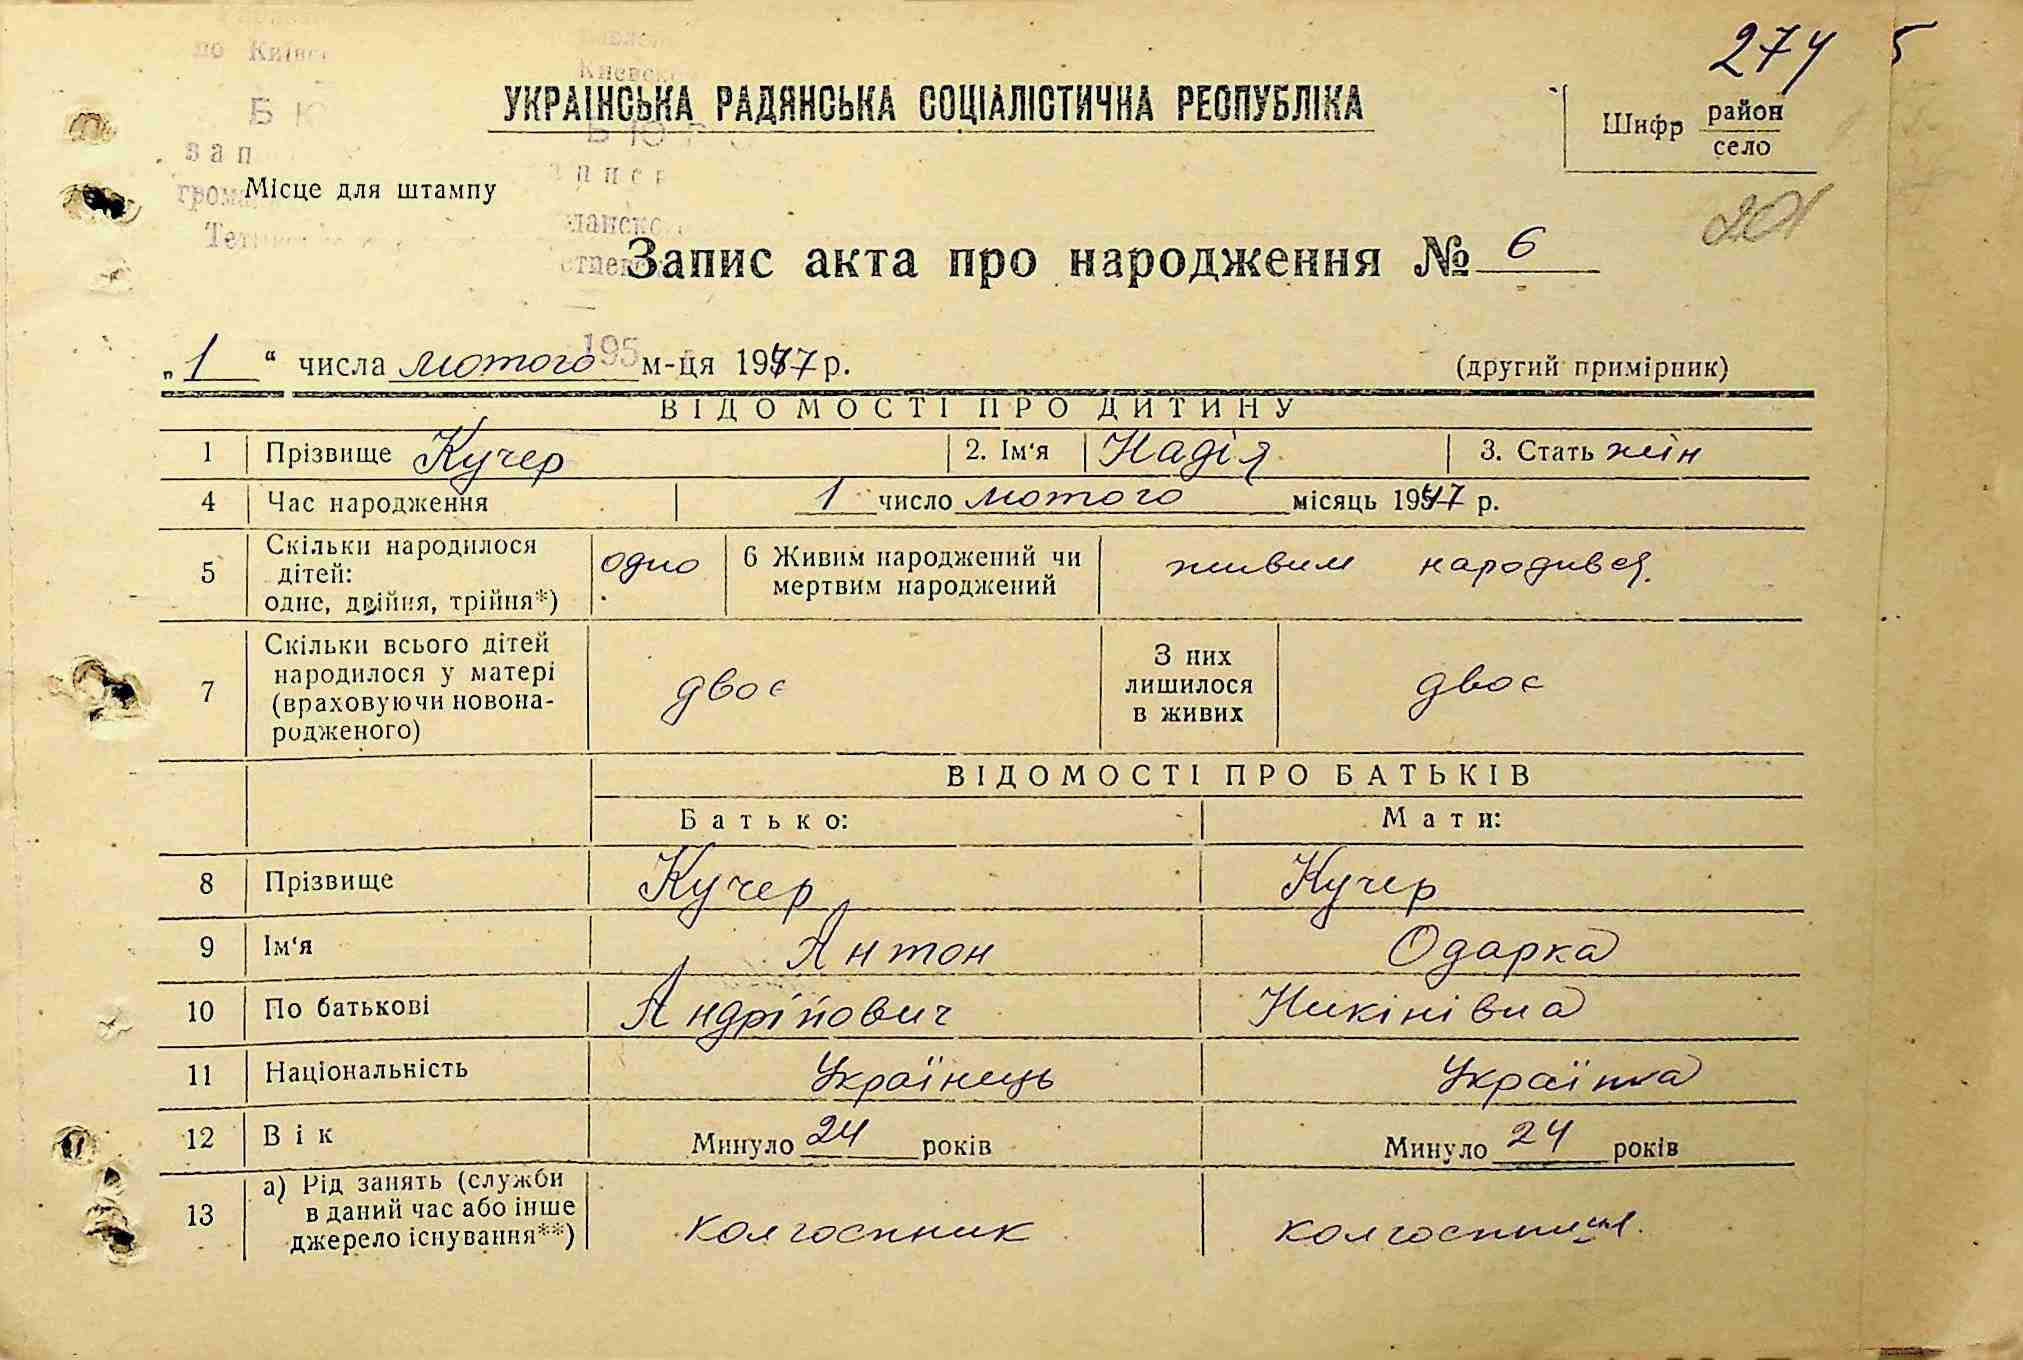 274 5
УКРАЇНСЬКА РАДЯНСЬКА СОЦІАЛІСТИЧНА РЕСПУБЛІКА
Шифр район
село
201
Місце для штампу
Запис акта про народження № 6
„1“ числа лютого м-ця 1947 р. (другий примірник)
ВІДОМОСТІ ПРО ДИТИНУ
1 Прізвище Кучер 2. Ім'я Надія 3. Стать жін
4 Час народження 1 число лютого місяць 1947 р.
5 Скільки народилося дітей: одне, двійня, трійня*) одно 6 Живим народжений чи мертвим народжений живим народився.
7 Скільки всього дітей народилося у матері (враховуючи новона-родженого) двоє З них лишилося в живих двоє
ВІДОМОСТІ ПРО БАТЬКІВ
Батько: Мати:
8 Прізвище Кучер Кучер
9 Ім'я Антон Одарка
10 По батькові Андрійович Никінівна
11 Національність Українець Українка
12 Вік Минуло 24 років Минуло 24 років
13 а) Рід занять (служби в даний час або інше джерело існування**) колгоспник колгоспниця.